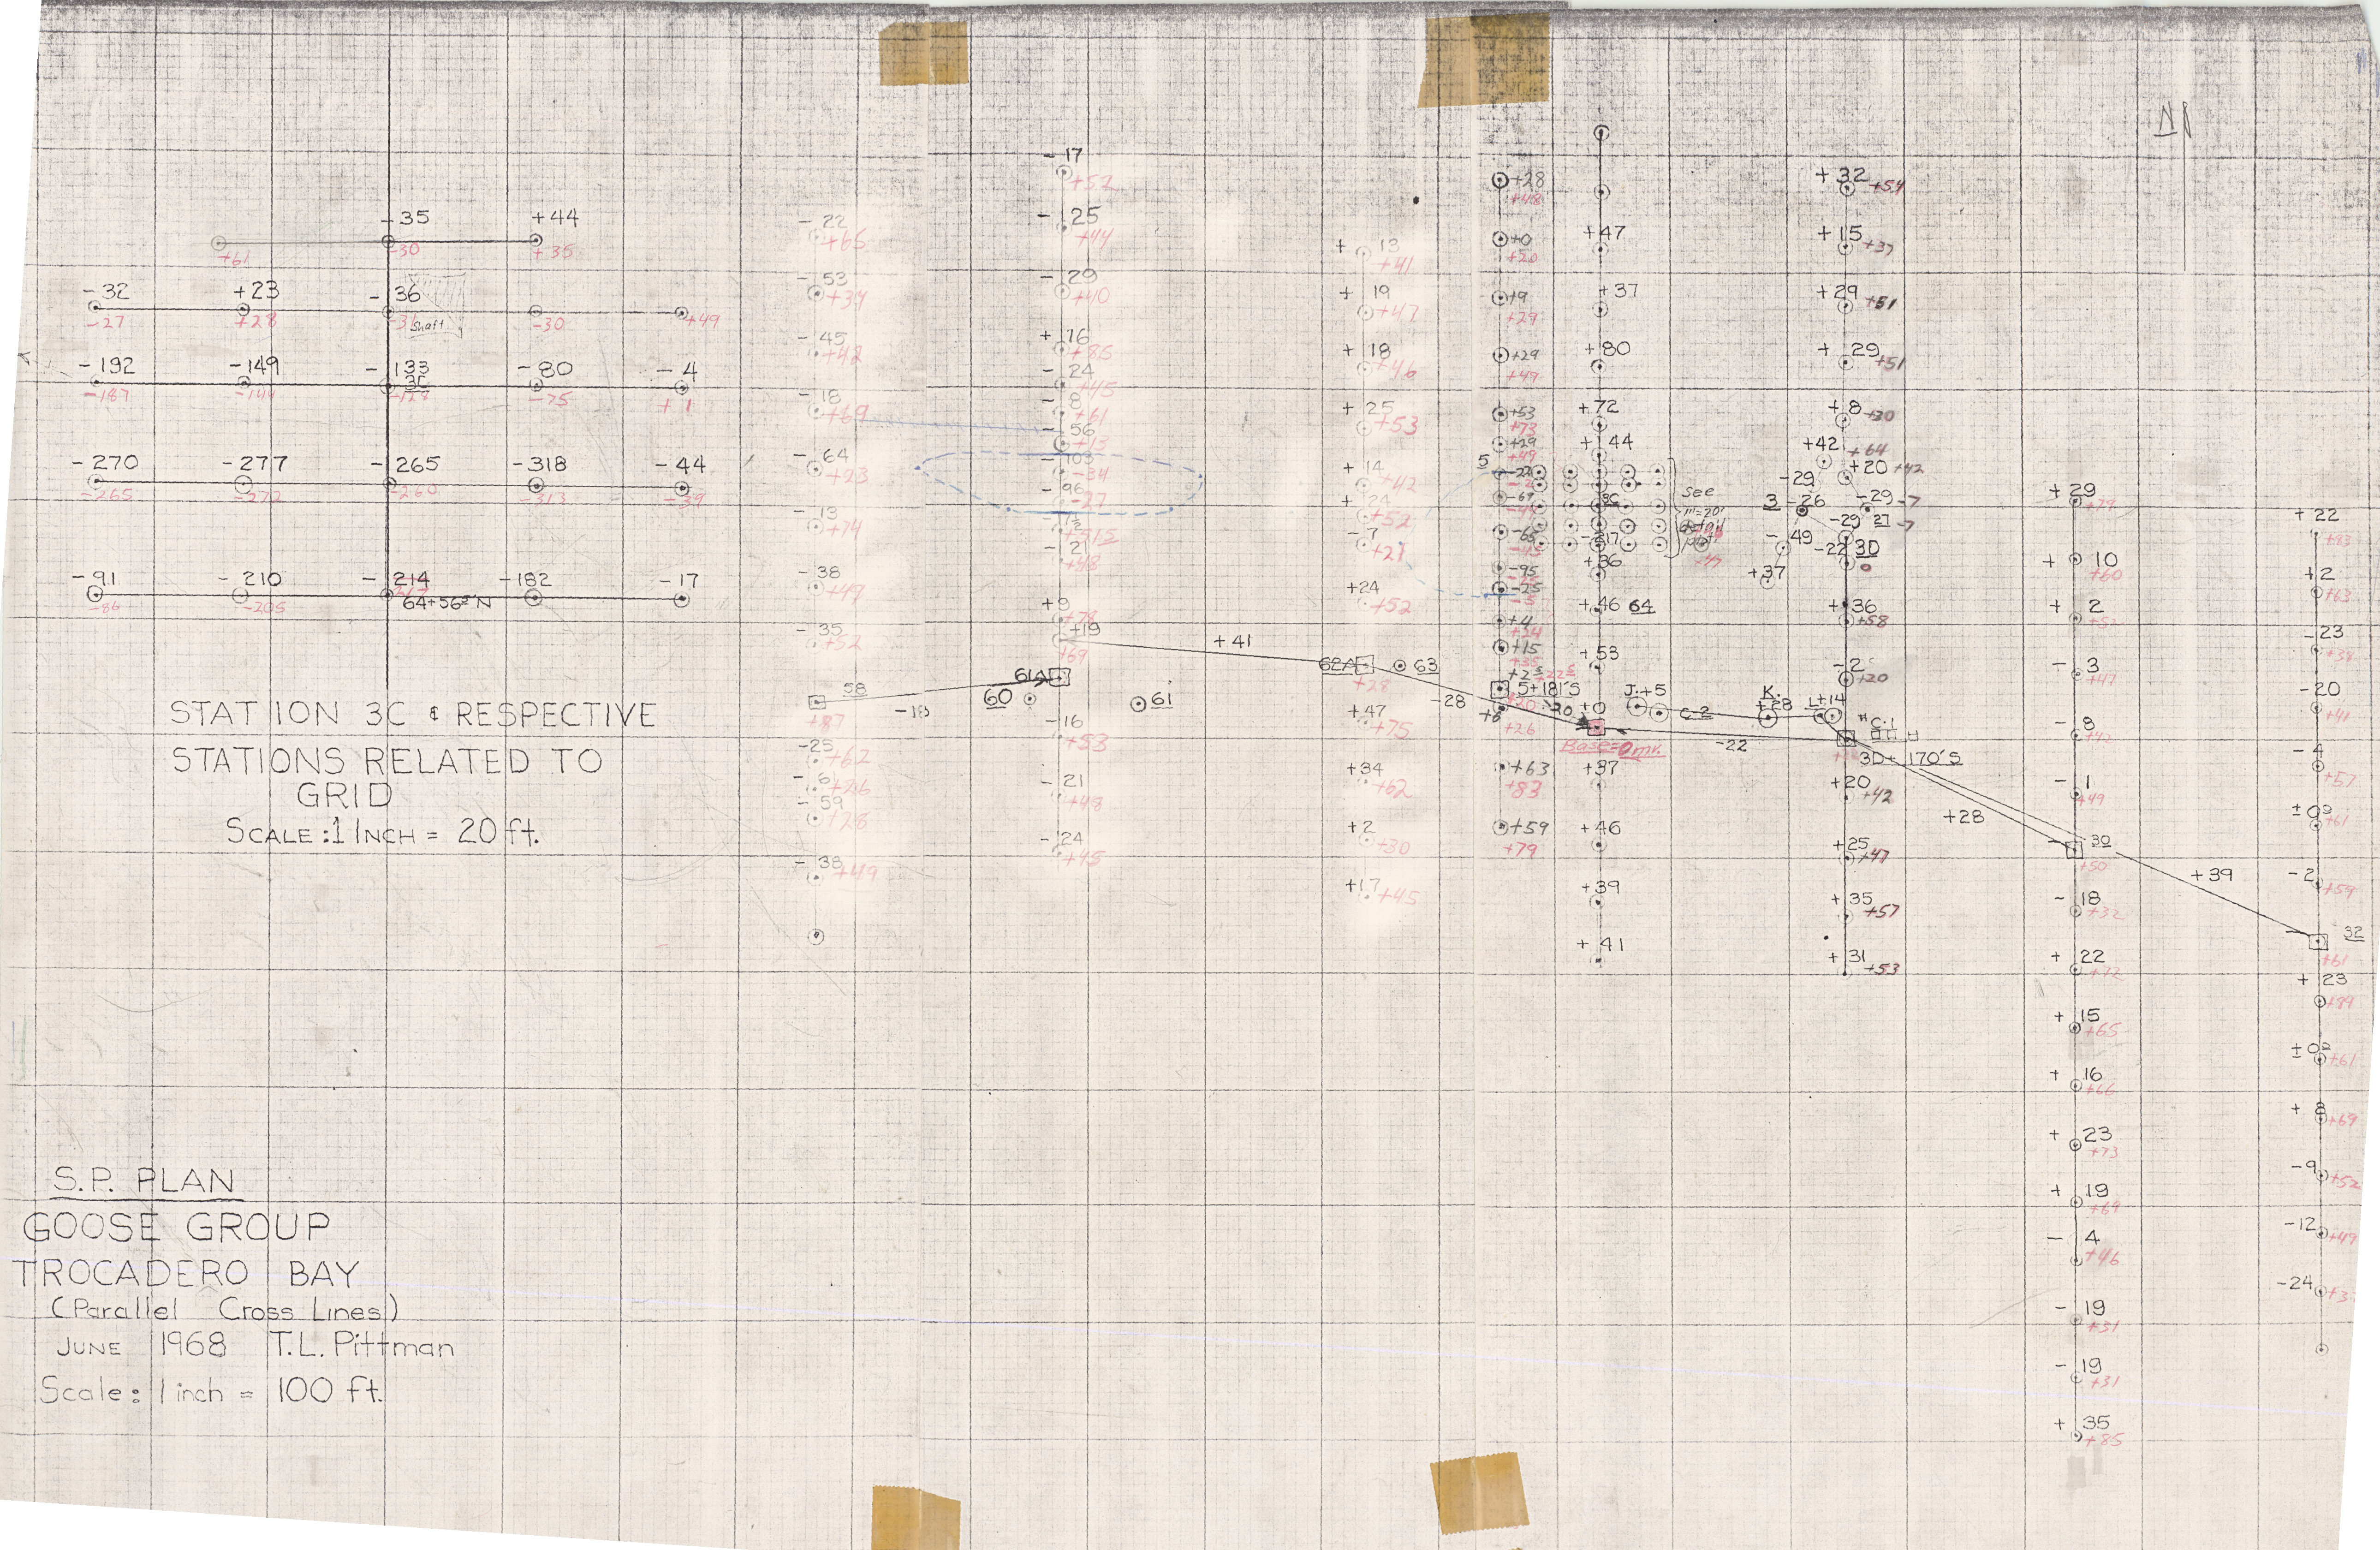 -35 +44
+61 -30 +35
-32 +23 -36
-27 +28 -31 Shaft -30 +49
-192 -149 -133 -80 -4
3C
-187 -144 -128 -75 +1
-270 -277 -265 -318 -44
-265 -272 -260 -313 -39
-91 -210 -214 -182 -17
-86 -205
64+56' N
STATION 3C & RESPECTIVE
STATIONS RELATED TO
GRID
SCALE: 1 INCH = 20 ft.
S.P. PLAN
GOOSE GROUP
TROCADERO BAY
(Parallel Cross Lines)
JUNE 1968 T.L. Pittman
Scale: 1 inch = 100 ft.
-22
+65
-53
+34
-45
+42
-18
+69
-64
+23
-13
+74
-38
+49
-35
+52
58
+87
-25
+62
-6
+26
-59
+28
-38
+49
-18
-17
+57
-125
+44
-29
+40
+76
+85
-24
+45
-8
+61
-56
+13
-103
-34
-96
-27
-21
+48
+9
+78
+19
+69
61A
60
61
-16
+53
-21
+48
-24
+45
+41
+13
+41
+19
+47
+18
+46
+25
+53
+14
+42
+24
+52
-7
+21
+24
+52
62A
63
+28
+47
+75
+34
+62
+2
+30
+17
+45
-28
+28
+48
+0
+20
+9
+29
+29
+49
+53
+73
+29
+49
5
-69
-49
-65
-45
-95
-25
-5
+4
+24
+15
+35
5+181'S
+6
+26
+63
+83
+59
+79
+47
+37
+80
+72
+144
3C
see
1"=20'
detail
+36
+46 64
+53
±0
Base=0 mv.
+37
+46
+39
+41
-22
J.+5
C-2
K.
+28
L+14
#C-1
3D+170'S
+32
+54
+15
+37
+29
+51
+29
+51
+8
+30
+42
+64
+20
+42
-29
3 -26
-29
-7
-29
27
-7
-49
-22
3D
0
+37
+36
+58
-2
+20
+20
+42
+25
+47
+35
+57
+31
+53
+28
+29
+79
+10
+60
+2
+52
-3
+47
-8
+42
-1
+49
30
+50
-18
+32
+22
+72
+15
+65
+16
+66
+23
+73
+19
+69
-4
+46
-19
+31
-19
+31
+35
+85
+39
+22
+83
+2
+63
-23
+38
-20
+41
-4
+57
±0
+61
-2
+59
32
+61
+23
+84
±0
+61
+8
+69
-9
+52
-12
+49
-24